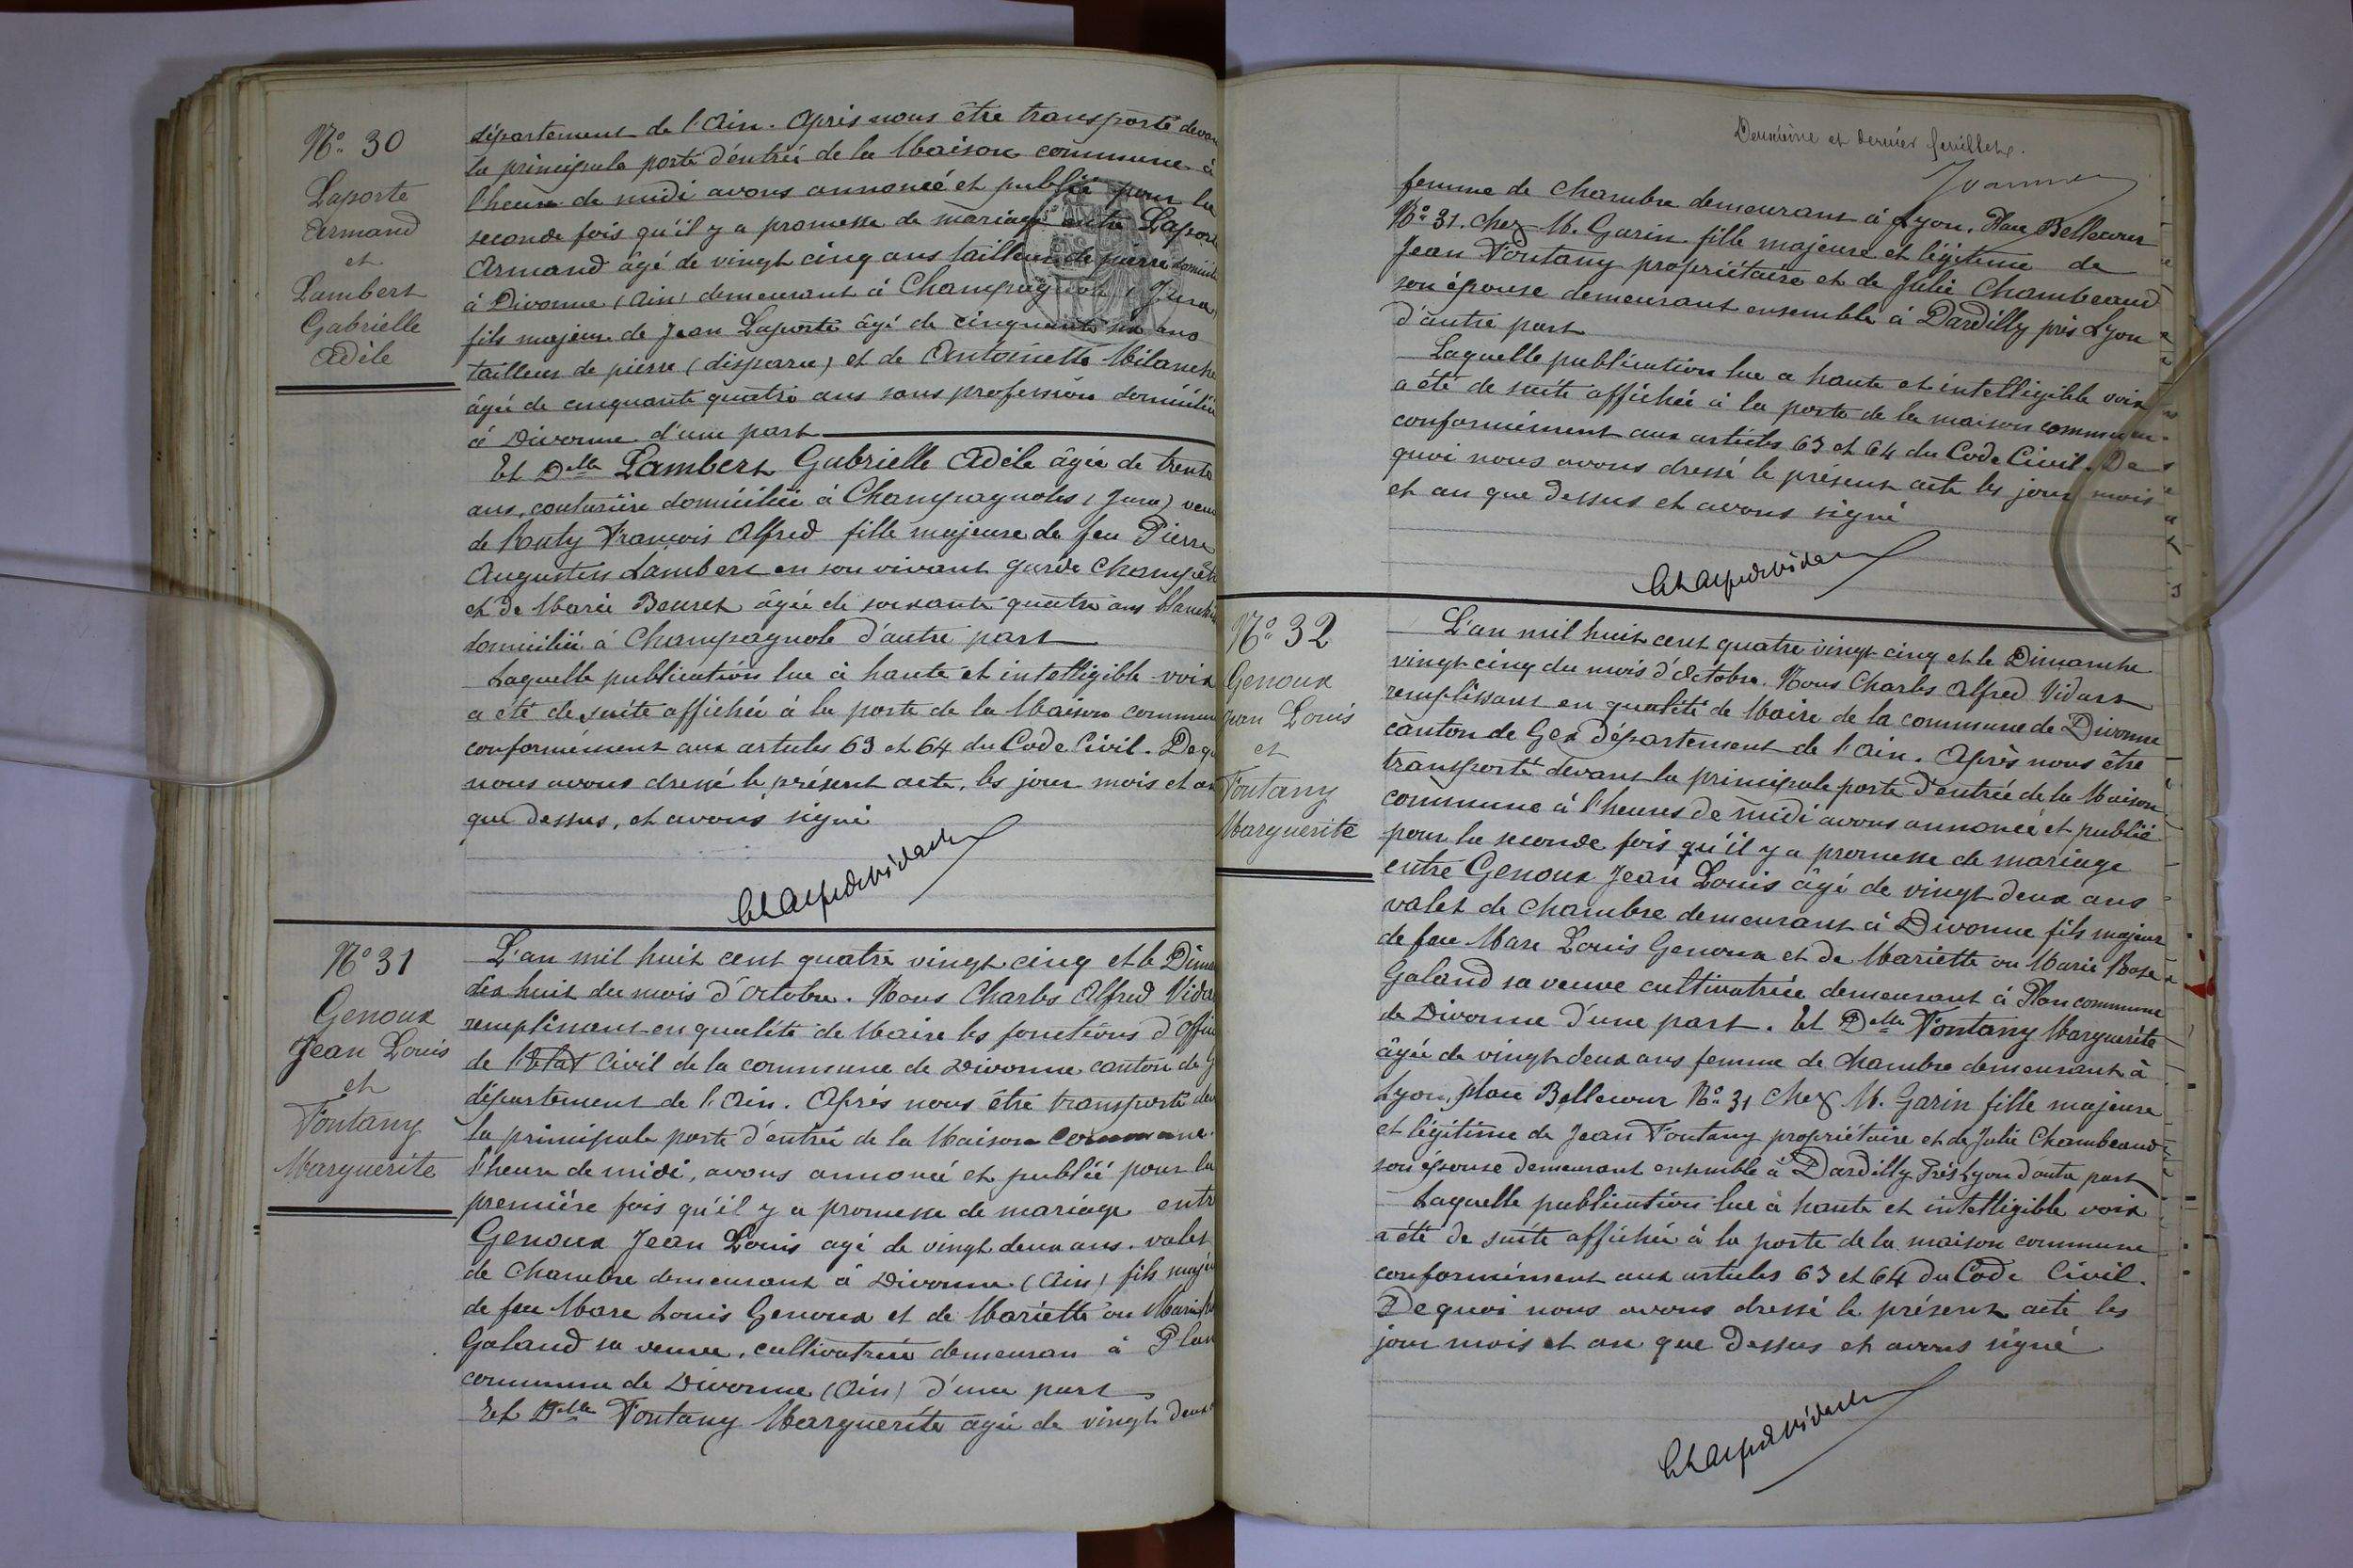 N° 30
Laporte
Armand
et
Lambert
Gabrielle
Adèle
département de l'Ain. Après nous être transporté devan
la principale porte d'entrée de la Maison commune à
l'heure de midi avons annoncé et publié pour la
seconde fois qu'il y a promesse de mariage entre Laport
Armand âgé de vingt cinq ans tailleur de pierre domicili
à Divonne (Ain) demeurant à Champagnole (Jura)
fils majeur de Jean Laporte âgé de cinquante six ans
tailleur de pierre (disparu) et de Antoinette Milanche
âgée de cinquante quatre ans sans profession domiciliée
à Divonne d'une part
Et Delle Lambert Gabrielle Adèle âgée de trente
ans, couturière domiciliée à Champagnoles (Jura) veuv
de François Alfred fille majeure de feu Pierre
Augustin Lambert en son vivant garde Champêtr
et de Marie Beuret âgée de soixante quatre ans blanchi
domiciliée à Champagnole d'autre part
Laquelle publication lue à haute et intelligible voix
a été de suite affichée à la porte de la Maison commun
conformément aux articles 63 et 64 du Code Civil. De qu
nous avons dressé le présent acte, les jour mois et an
que dessus, et avons signé
Ch Alfred Vidart
N° 31
Genoux
Jean Louis
et
Fontany
Marguerite
L'an mil huit cent quatre vingt cinq et le Diman
dix huit du mois d'Octobre. Nous Charles Alfred Vidar
remplissant en qualité de Maire les fonctions d'Offici
de l'Etat Civil de la commune de Divonne canton de G
département de l'Ain. Après nous être transporté dev
la principale porte d'entrée de la Maison commune
l'heure de midi, avons annoncé et publié pour la
première fois qu'il y a promesse de mariage entr
Genoux Jean Louis agé de vingt deux ans. valet
de Chambre demeurant à Divonne (Ain) fils maje
de feu Marc Louis Genoux et de Mariette ou Marie Ro
Galand sa veuve, cultivatrice demeuran à Plan
commune de Divonne (Ain) d'une part
Et Delle Fontany Marguerite agée de vingt deux
Deuxième et dernier feuillet.
femme de Chambre demeurant à Lyon, Place Bellecour
N° 31. chez M. Garin fille majeure et légitime de
Jean Fontany propriétaire et de Julie Chambeaud
son épouse demeurant ensemble à Dardilly près Lyon
d'autre part
Laquelle publication lue a haute et intelligible voix
a été de suite affichée à la porte de la maison commune
conformément aux articles 63 et 64 du Code Civil. De
quoi nous avons dressé le présent acte les jour mois
et an que dessus et avons signé
Ch Alfred Vidart
N° 32
Genoux
Jean Louis
et
Fontany
Marguerite
L'an mil huit cent quatre vingt cinq et le Dimanche
vingt cinq du mois d'Octobre. Nous Charles Alfred Vidart
remplissant en qualité de Maire de la commune de Divonne
canton de Gex département de l'Ain. Après nous être
transporté devant la principale porte d'entrée de la Maison
commune à l'heures de midi avons annoncé et publié
pour la seconde fois qu'il y a promesse de mariage
entre Genoux Jean Louis âgé de vingt deux ans
valet de chambre demeurant à Divonne fils majeur
de feu Marc Louis Genoux et de Mariette ou Marie Rose
Galand sa veuve cultivatrice demeurant à Plan commune
de Divonne d'une part. Et Delle Fontany Marguerite
âgée de vingt deux ans femme de chambre demeurant à
Lyon, place Bellecour N° 31 chez M. Garin fille majeure
et légitime de Jean Fontany propriétaire et de Julie Chambeaud
son épouse demeurant ensemble à Dardilly Près Lyon d'autre part
Laquelle publication lue à haute et intelligible voix
a été de suite affichée à la porte de la maison commune
conformément aux articles 63 et 64 du Code Civil.
De quoi nous avons dressé le présent acte les
jour mois et an que dessus et avons signé
Ch Alfred Vidart